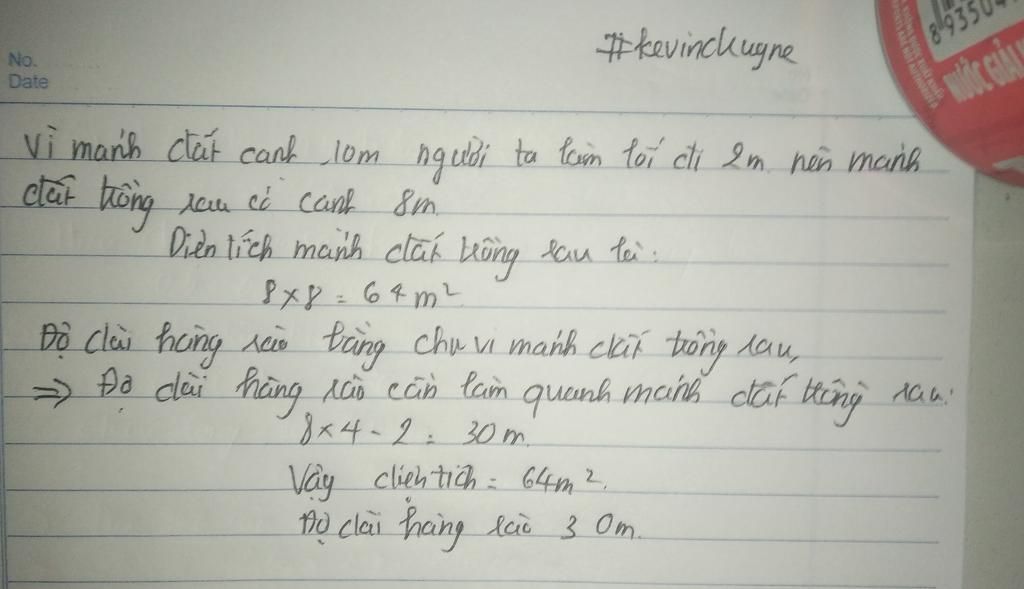 #kevinchugne
8935049
NƯỚC GIẢI
No.
Date
Vì mảnh đất cạnh 10m người ta làm lối đi 2m nên mảnh
đất trồng rau có cạnh 8m
Diện tích mảnh đất trồng rau là:
8 x 8 = 64 m²
Độ dài hàng rào bằng chu vi mảnh đất trồng rau,
=> Độ dài hàng rào cần làm quanh mảnh đất trồng rau:
8 x 4 - 2 = 30 m.
Vậy diện tích = 64m².
Độ dài hàng rào 30m.